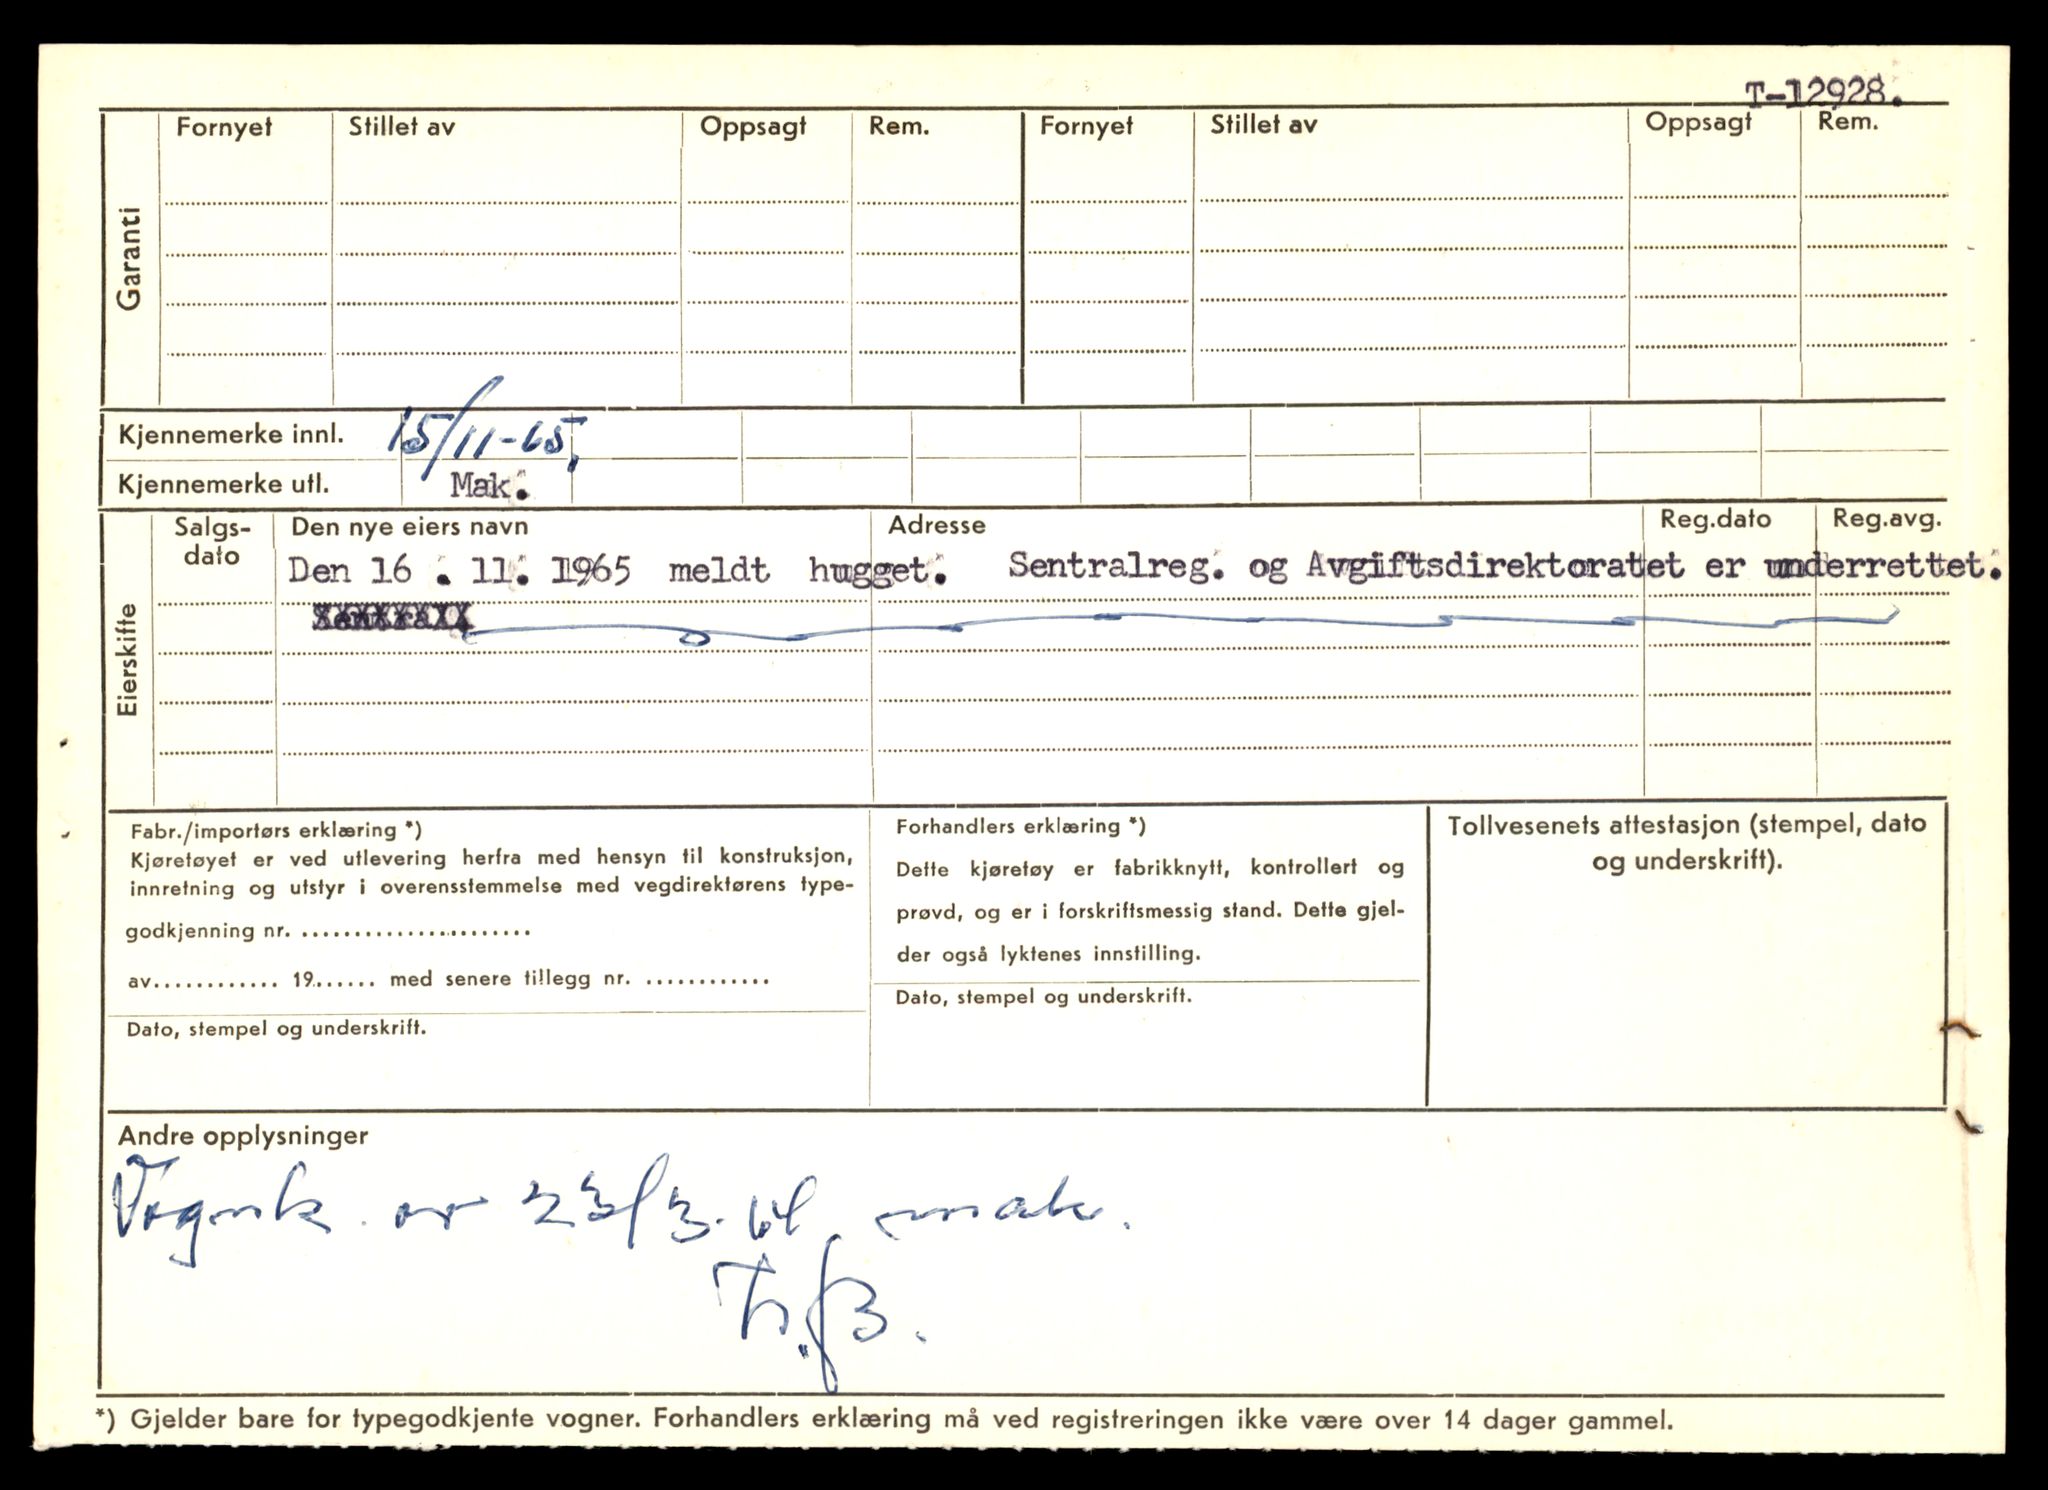 T-12928.
Garanti
Fornyet Stillet av Oppsagt Rem. Fornyet Stillet av Oppsagt Rem.
Kjennemerke innl. 15/11-65.
Kjennemerke utl. Mak.
Eierskifte
Salgs-
dato Den nye eiers navn Adresse Reg.dato Reg.avg.
Den 16 . 11. 1965 meldt hugget. Sentralreg. og Avgiftsdirektoratet er underrettet.
Fabr./importørs erklæring *)
Kjøretøyet er ved utlevering herfra med hensyn til konstruksjon,
innretning og utstyr i overensstemmelse med vegdirektørens type-
godkjenning nr. ........................
av............ 19...... med senere tillegg nr. ............
Dato, stempel og underskrift.
Forhandlers erklæring *)
Dette kjøretøy er fabrikknytt, kontrollert og
prøvd, og er i forskriftsmessig stand. Dette gjel-
der også lyktenes innstilling.
Dato, stempel og underskrift.
Tollvesenets attestasjon (stempel, dato
og underskrift).
Andre opplysninger
Vognk. av 23/3-64 mak.
*) Gjelder bare for typegodkjente vogner. Forhandlers erklæring må ved registreringen ikke være over 14 dager gammel.